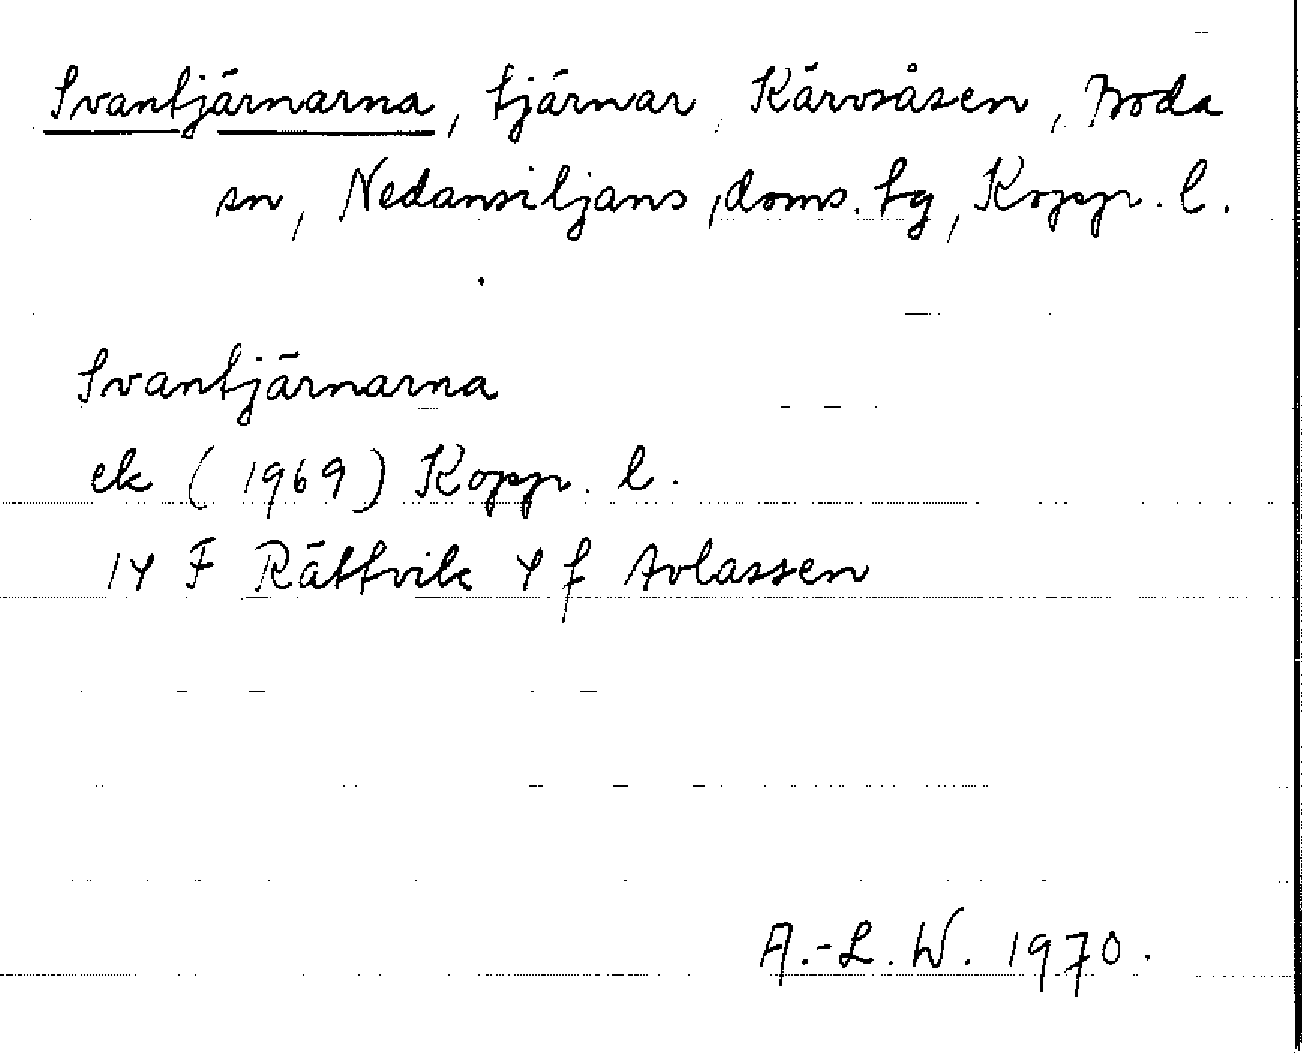 Svantjärnarna, tjärnar, Kärvsåsen, Boda
sn, Nedansiljans, doms. tg, Kopp. l.
Svantjärnarna
ek (1969) Kopp. l.
14 F Rättvik 4 f Avlassen
A.-L. W. 1970.